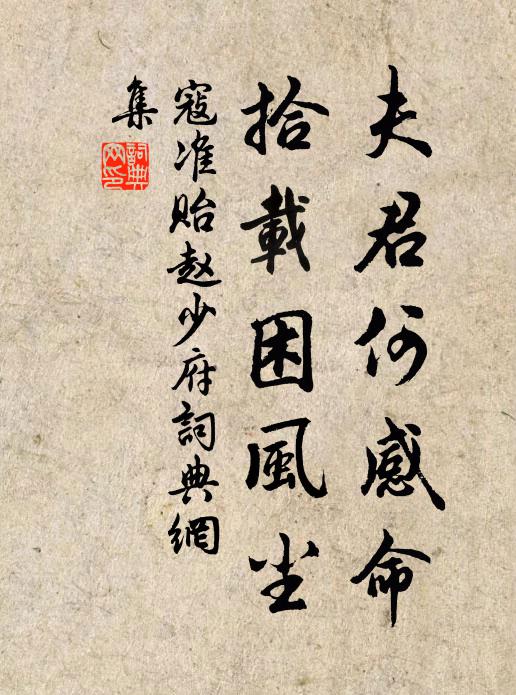 夫君何感命
拾載困風尘
寇准貽赵少府詞典網
集
詞典
网印